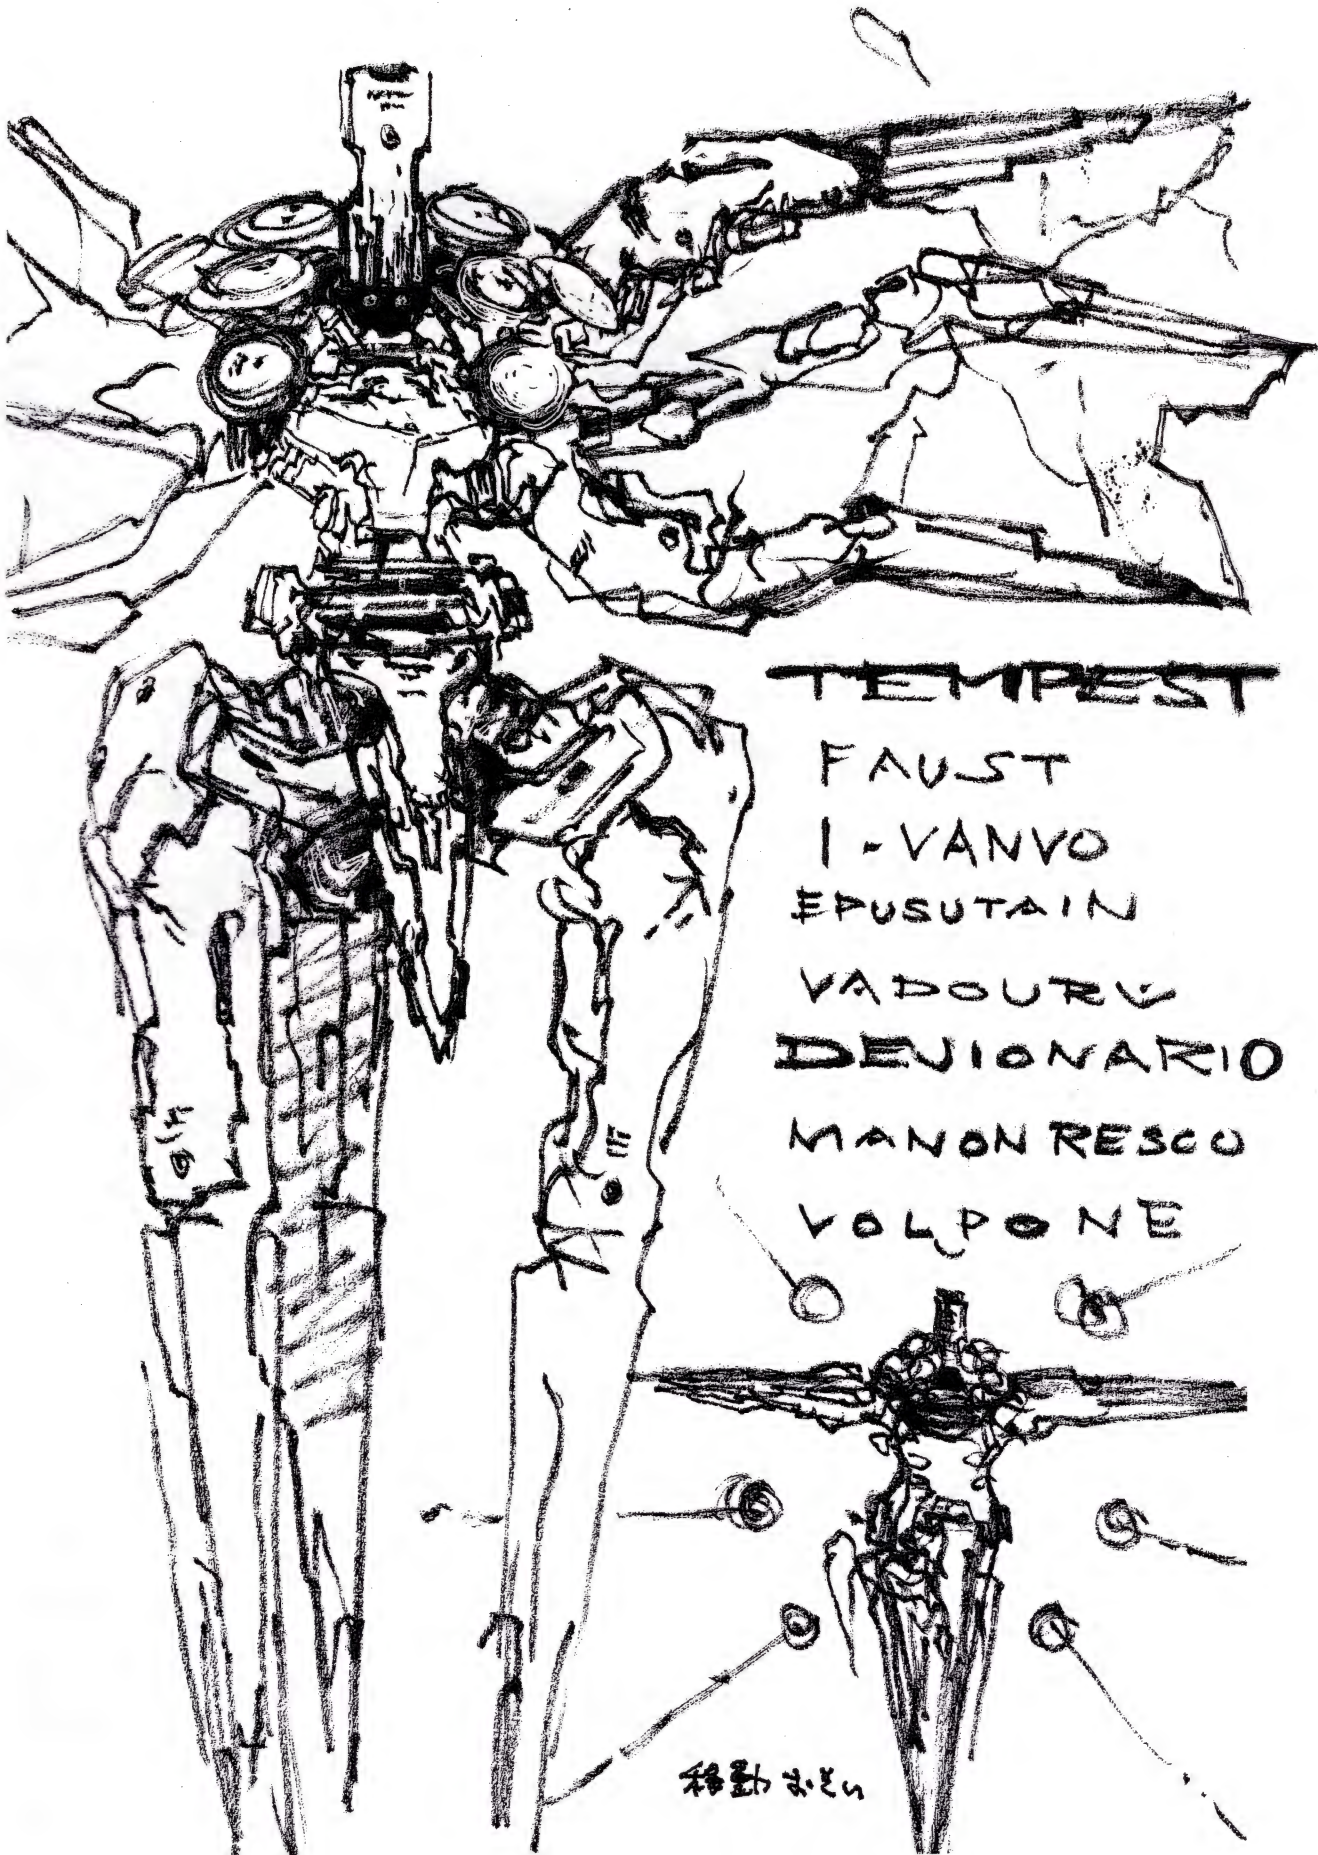 TEMPEST
FAUST
I-VANVO
EPUSUTAIN
VADOURU
DEJIONARIO
MANON RESCO
VOLPONE
移動おそい